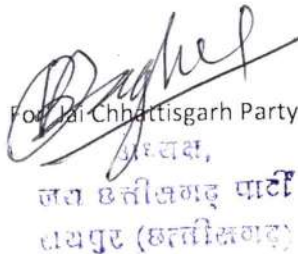 Baghel
For Jai Chhattisgarh Party
अध्यक्ष,
जय छत्तीसगढ़ पार्टी
रायपुर (छत्तीसगढ़)